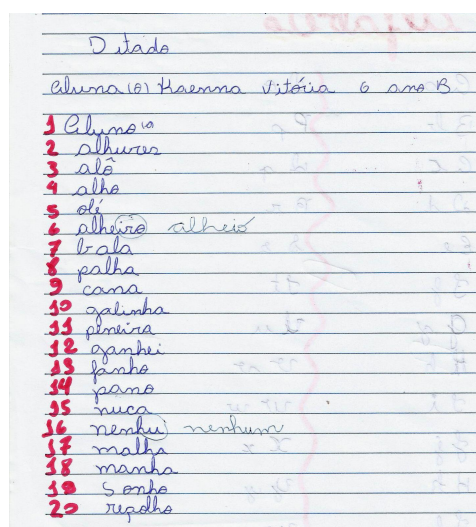 Ditado
Aluna (a) Kaenna Vitória 6 ano B
1 Aluno (a)
2 alhures
3 alô
4 alho
5 olé
6 alheiro alheio
7 bala
8 palha
9 cana
10 galinha
11 peneira
12 ganhei
13 fanho
14 pano
15 nuca
16 nenhu nenhum
17 malha
18 manha
19 Sonho
20 repolho